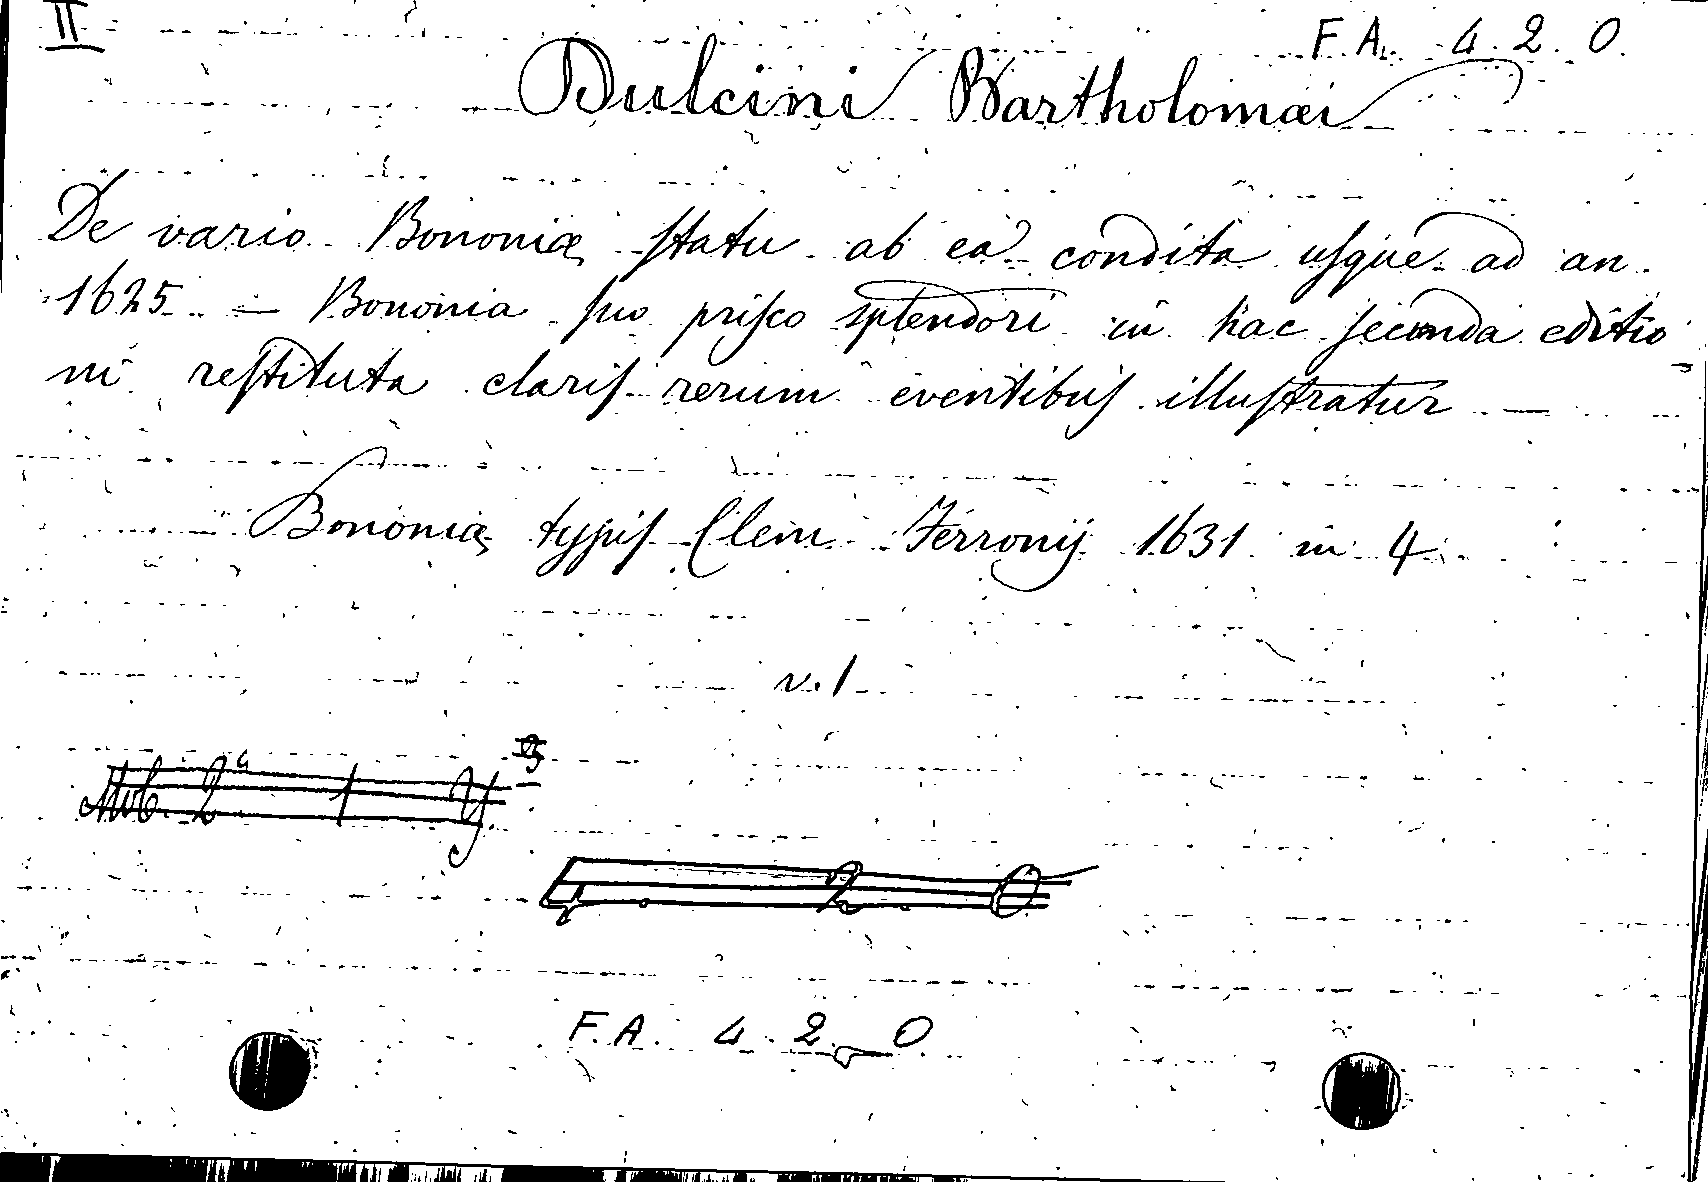 II
F. A. 4. 2. 0.
Dulcini Bartholomæi
De vario Bononiæ ſtatu ab ea condita uſque ad an.
1625 — Bononia ſuo priſco splendori in hac ſeconda editio
ni reſtituta clariſ rerum eventibuſ illuſtratur —
Bononiæ typiſ Clem Ferronij 1631 in 4
v. 1
2ª 1
4. 2. 0
F. A. 4. 2. 0